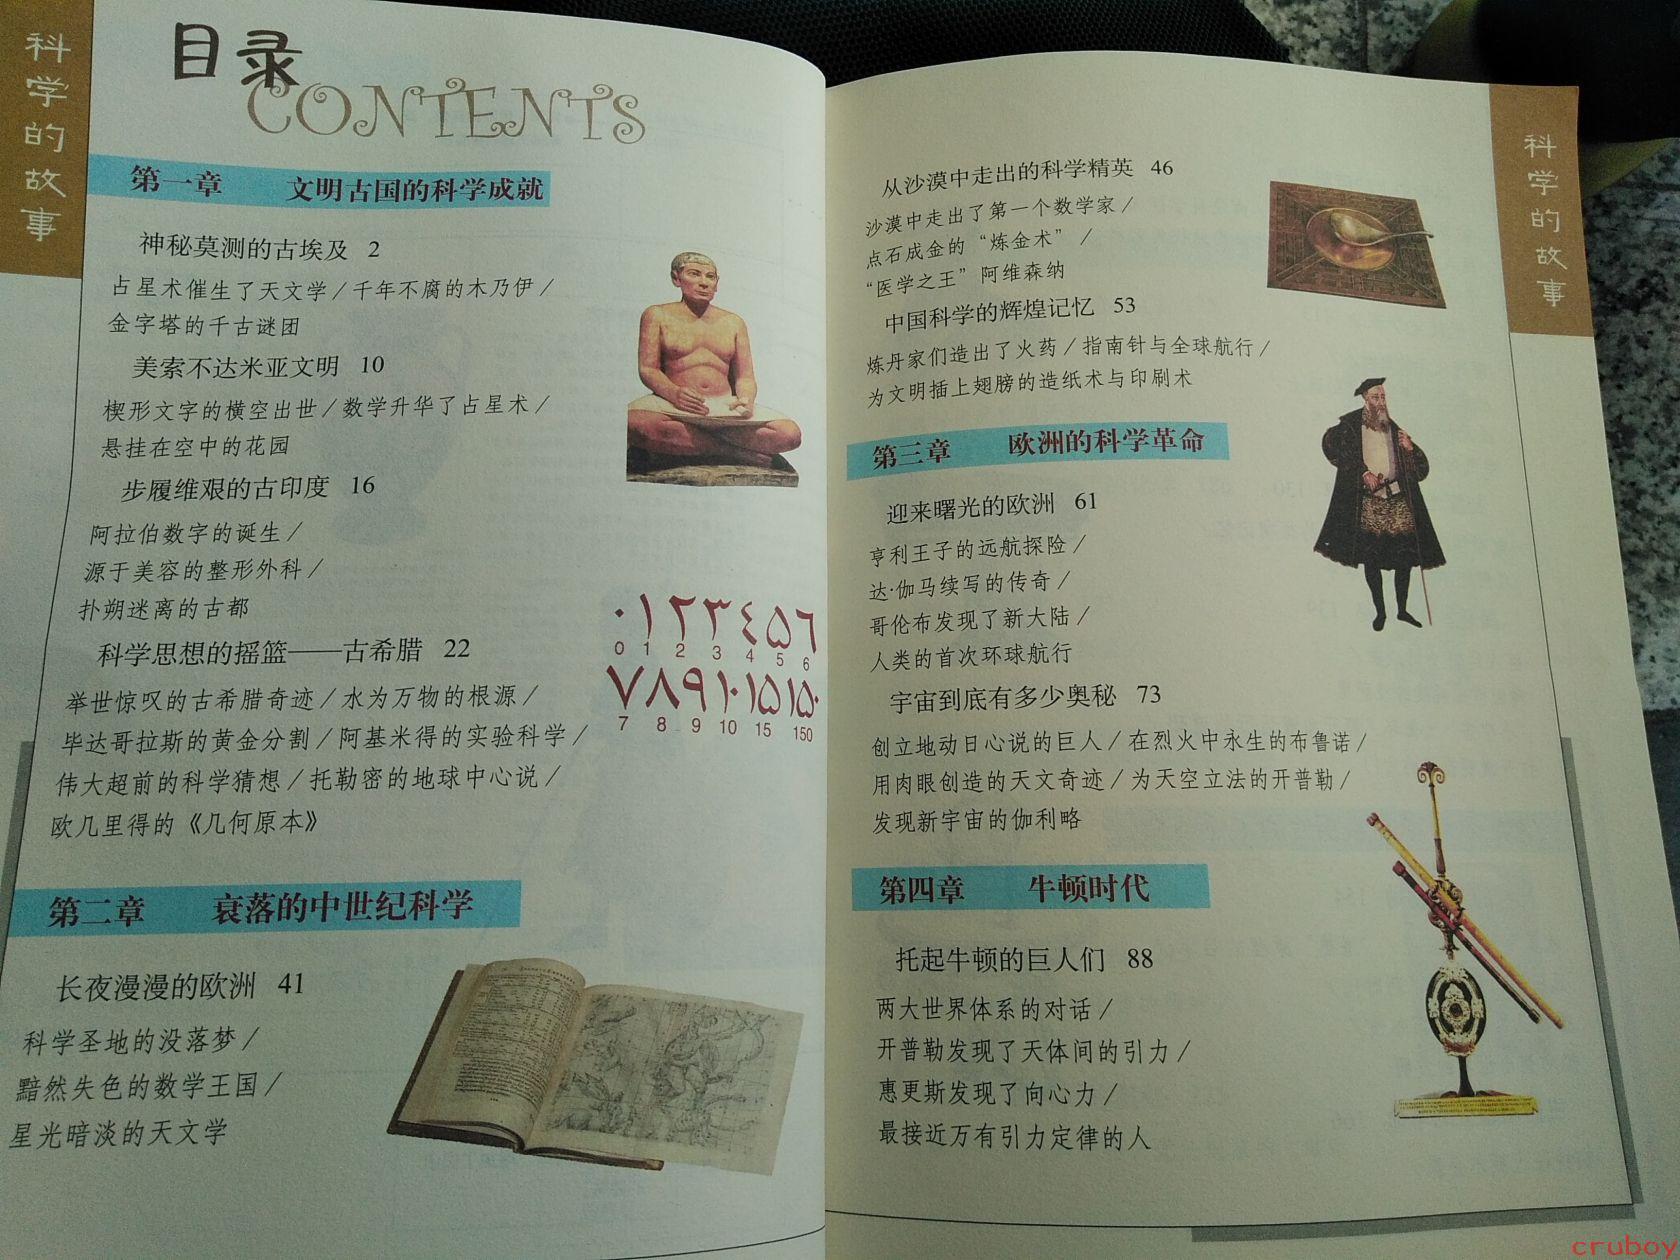 科学的故事
目录
CONTENTS
第一章 文明古国的科学成就
神秘莫测的古埃及 2
占星术催生了天文学/千年不腐的木乃伊/
金字塔的千古谜团
美索不达米亚文明 10
楔形文字的横空出世/数学升华了占星术/
悬挂在空中的花园
步履维艰的古印度 16
阿拉伯数字的诞生/
源于美容的整形外科/
扑朔迷离的古都
科学思想的摇篮——古希腊 22
举世惊叹的古希腊奇迹/水为万物的根源/
毕达哥拉斯的黄金分割/阿基米得的实验科学/
伟大超前的科学猜想/托勒密的地球中心说/
欧几里得的《几何原本》
٠ ١ ٢ ٣ ٤ ٥ ٦
0 1 2 3 4 5 6
٧ ٨ ٩ ١٠ ١٥ ١٥٠
7 8 9 10 15 150
第二章 衰落的中世纪科学
长夜漫漫的欧洲 41
科学圣地的没落梦/
黯然失色的数学王国/
星光暗淡的天文学
从沙漠中走出的科学精英 46
沙漠中走出了第一个数学家/
点石成金的“炼金术”/
“医学之王”阿维森纳
中国科学的辉煌记忆 53
炼丹家们造出了火药/指南针与全球航行/
为文明插上翅膀的造纸术与印刷术
第三章 欧洲的科学革命
迎来曙光的欧洲 61
亨利王子的远航探险/
达·伽马续写的传奇/
哥伦布发现了新大陆/
人类的首次环球航行
宇宙到底有多少奥秘 73
创立地动日心说的巨人/在烈火中永生的布鲁诺/
用肉眼创造的天文奇迹/为天空立法的开普勒/
发现新宇宙的伽利略
第四章 牛顿时代
托起牛顿的巨人们 88
两大世界体系的对话/
开普勒发现了天体间的引力/
惠更斯发现了向心力/
最接近万有引力定律的人
科学的故事
cruboy